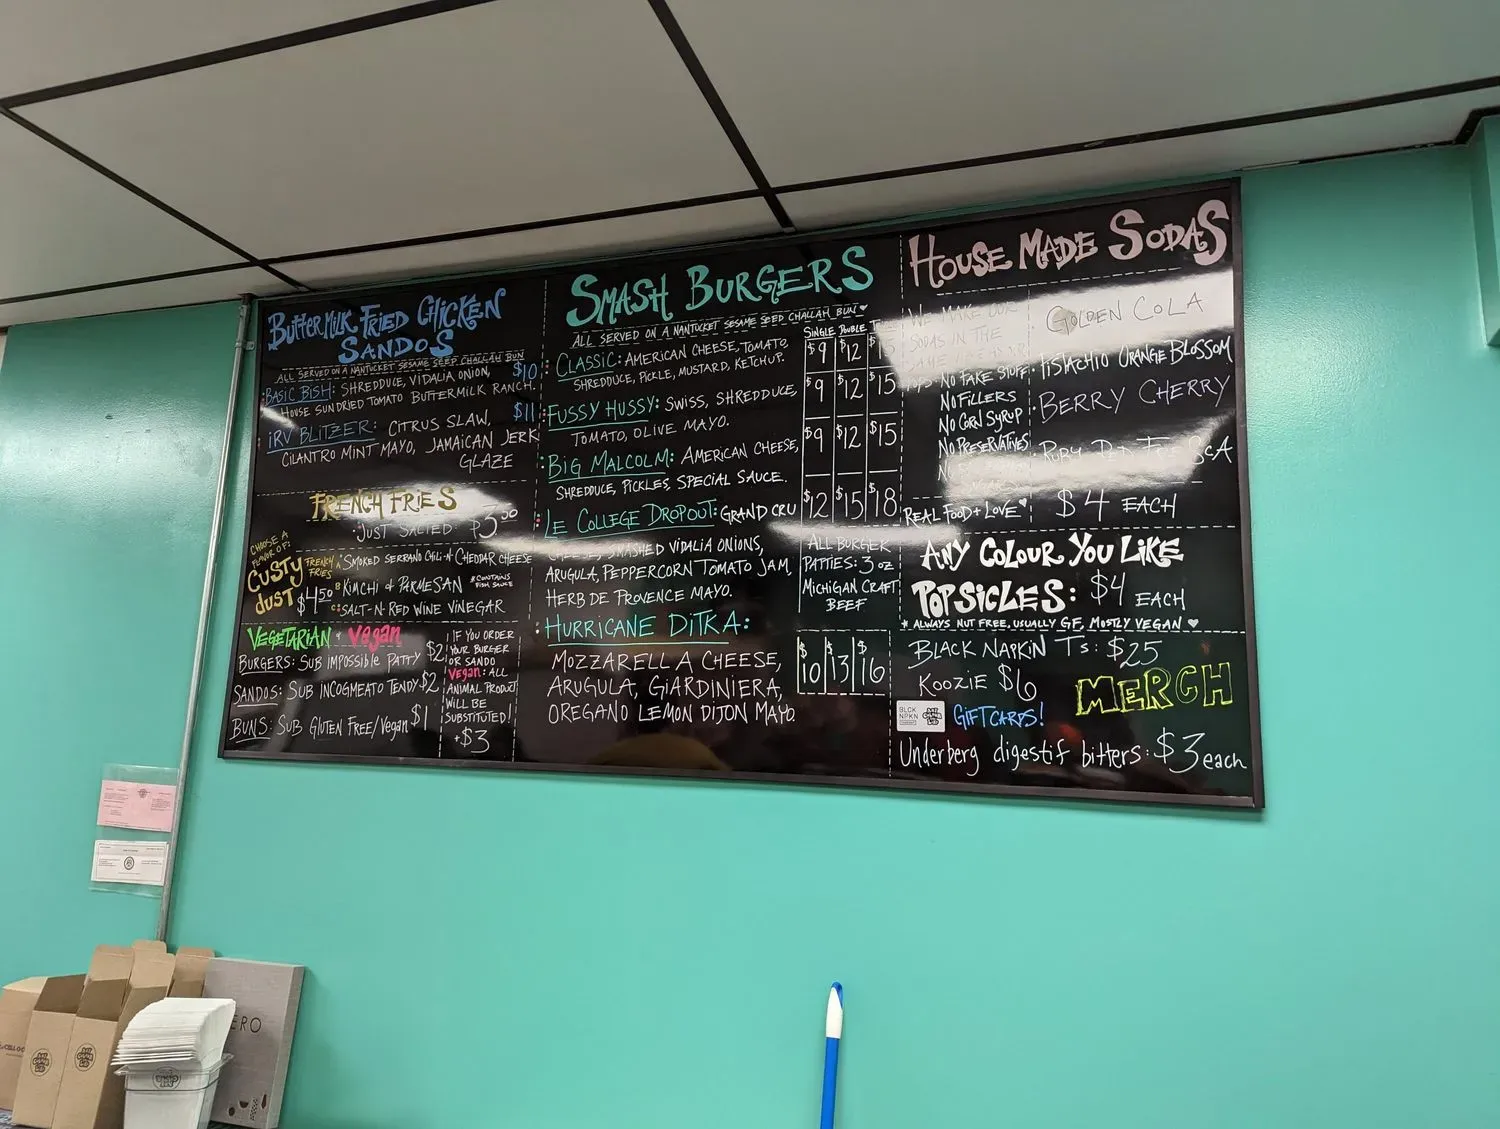 Butter Milk Fried Chicken
Sandos
All served on a Nantucket Sesame Seed Challah Bun
Basic Bish: Shredduce, Vidalia Onion, $10
House Sundried Tomato Buttermilk Ranch.
Irv Blitzer: Citrus Slaw, $11
Cilantro Mint Mayo, Jamaican Jerk
Glaze
French Fries
Just Salted: $3.50
Choose a
flavor of:
Custy
dust
French
Fries
$4.50
A: Smoked Serrano Chili-N-Cheddar Cheese
B: Kimchi & Parmesan *Contains
Fish Sauce
C: Salt-N-Red Wine Vinegar
Vegetarian & Vegan
Burgers: Sub Impossible Patty $2
Sandos: Sub Incogmeato Tendy $2
Buns: Sub Gluten Free/Vegan $1
If you order
your burger
or sando
Vegan: All
animal product
will be
substituted!
+$3
Smash Burgers
All served on a Nantucket Sesame Seed Challah Bun ♥
Single Double
Classic: American Cheese, Tomato,
Shredduce, Pickle, Mustard, Ketchup.
$9 $12 $15
Fussy Hussy: Swiss, Shredduce,
Tomato, Olive Mayo.
$9 $12 $15
Big Malcolm: American Cheese,
Shredduce, Pickles, Special Sauce.
$9 $12 $15
Le College Dropout: Grand Cru
Cheese, Smashed Vidalia Onions,
Arugula, Peppercorn Tomato Jam,
Herb De Provence Mayo.
$12 $15 $18
All Burger
Patties: 3 oz
Michigan Craft
Beef
Hurricane Ditka:
Mozzarella Cheese,
Arugula, Giardiniera,
Oregano Lemon Dijon Mayo.
$10 $13 $16
House Made Sodas
We make our
sodas in the
same
No Fake Stuff
No Fillers
No Corn Syrup
No Preservatives
Real Food + Love ♥
Golden Cola
Pistachio Orange Blossom
Berry Cherry
$4 each
Any Colour You Like
Popsicles: $4 each
* Always nut free, usually GF, mostly vegan ♥
Black Napkin Ts: $25
Koozie $6
Merch
BLCK
NPKN
Giftcards!
Underberg digestif bitters: $3 each
ERO